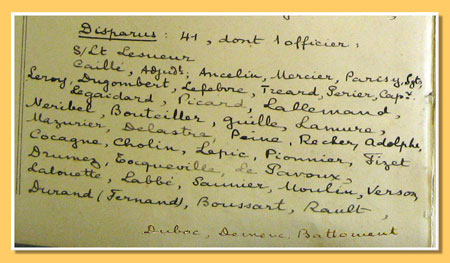 Disparus : 41, dont 1 officier :
S/Lt Lesueur
Caillé, Adjudt; Ancelin, Mercier, Parisy, Sgts;
Leroy, Dugombert, Lefebvre, Treard, Perier, Capx.
Legaidard, Picard, Lallemand,
Neribel, Bouteiller, Guille, Lamure,
Mazurier, Delastre, Peine, Recher, Adolphe,
Cocagne, Cholin, Lepic, Pionnier, Fizet
Drumez, Tocqueville, Le Pavoux,
Lalouette, Labbé, Saunier, Moulin, Verson
Durand (Fernand), Boussart, Rault,
Duboc, Battement